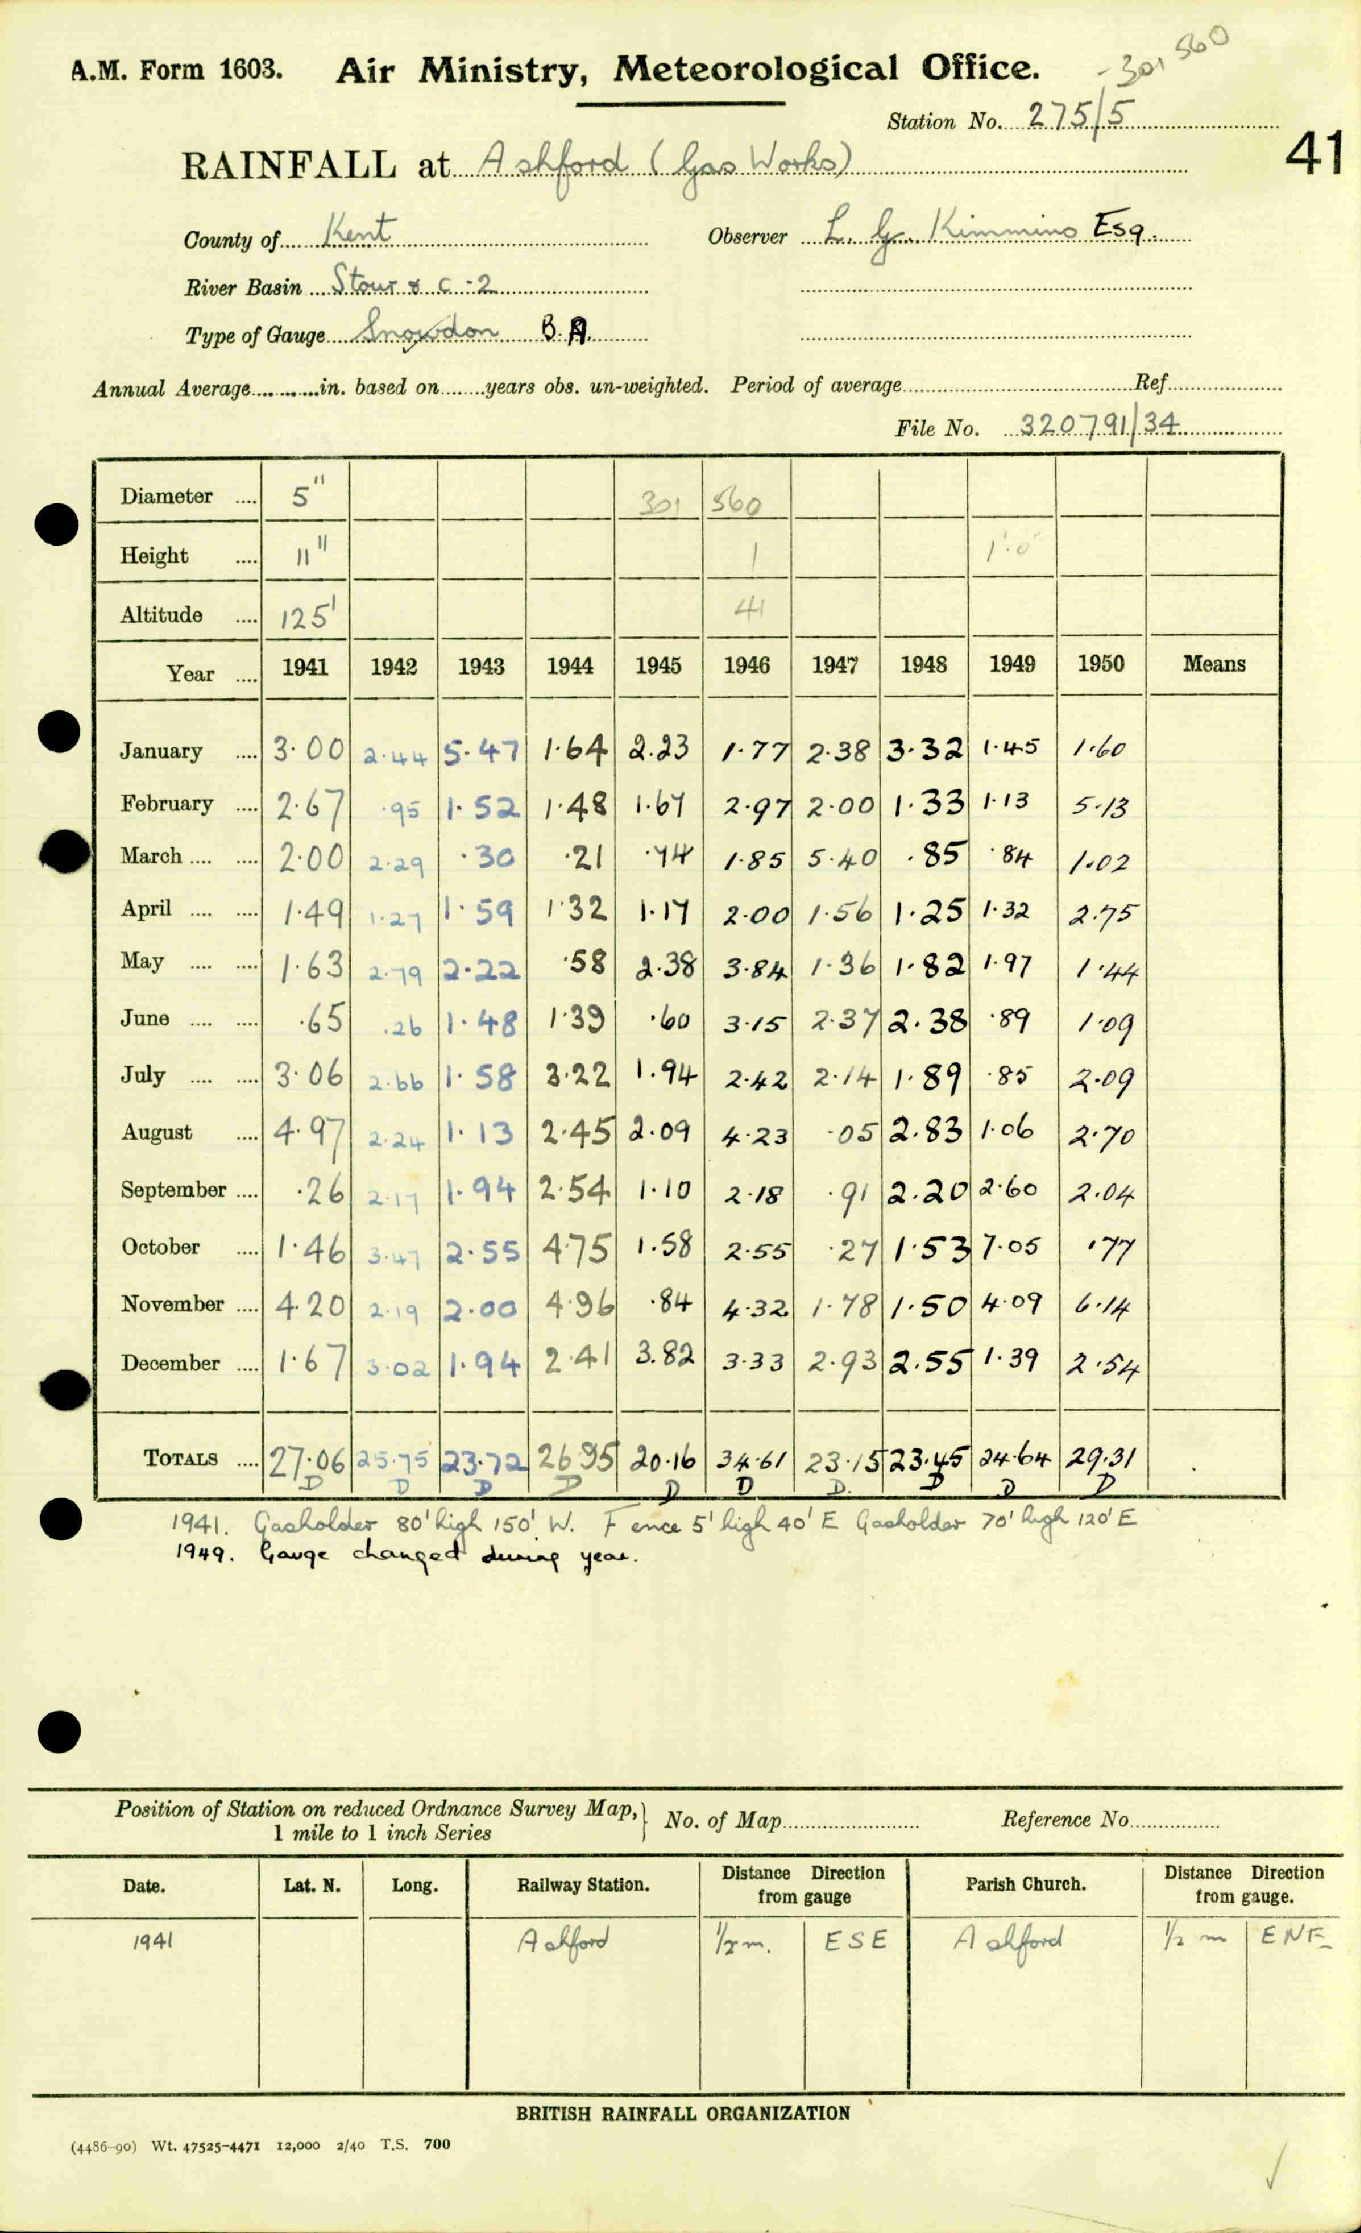 A.M. Form 1603. Air Ministry, Meteorological Office. -301 560
Station No. 275/5
41
RAINFALL at Ashford (Gas Works)
County of Kent Observer L. G. Kimmins Esq.
River Basin Stour & C -2
Type of Gauge Snowdon B.R.
Annual Average in. based on years obs. un-weighted. Period of average Ref
File No. 320791/34
Diameter .... 5" 301 560
Height .... 11" 1 1'.0"
Altitude .... 125' 41
Year .... 1941 1942 1943 1944 1945 1946 1947 1948 1949 1950 Means
January .... 3.00 2.44 5.47 1.64 2.23 1.77 2.38 3.32 1.45 1.60
February .... 2.67 .95 1.52 1.48 1.67 2.97 2.00 1.33 1.13 5.13
March .... .... 2.00 2.29 .30 .21 .74 1.85 5.40 .85 .84 1.02
April .... .... 1.49 1.27 1.59 1.32 1.17 2.00 1.56 1.25 1.32 2.75
May .... .... 1.63 2.79 2.22 .58 2.38 3.84 1.36 1.82 1.97 1.44
June .... .... .65 .26 1.48 1.39 .60 3.15 2.37 2.38 .89 1.09
July .... .... 3.06 2.66 1.58 3.22 1.94 2.42 2.14 1.89 .85 2.09
August .... 4.97 2.24 1.13 2.45 2.09 4.23 .05 2.83 1.06 2.70
September .... .26 2.17 1.94 2.54 1.10 2.18 .91 2.20 2.60 2.04
October .... 1.46 3.47 2.55 4.75 1.58 2.55 .27 1.53 7.05 .77
November .... 4.20 2.19 2.00 4.96 .84 4.32 1.78 1.50 4.09 6.14
December .... 1.67 3.02 1.94 2.41 3.82 3.33 2.93 2.55 1.39 2.54
TOTALS .... 27.06 25.75 23.72 26.95 20.16 34.61 23.15 23.45 24.64 29.31
D D D D D D D. D D D
1941. Gasholder 80' high 150' W. Fence 5' high 40' E Gasholder 70' high 120' E
1949. Gauge changed during year.
Position of Station on reduced Ordnance Survey Map, 1 mile to 1 inch Series } No. of Map Reference No.
Date. Lat. N. Long. Railway Station. Distance Direction from gauge Parish Church. Distance Direction from gauge.
1941 Ashford 1/2 m. ESE Ashford 1/2 m ENE
BRITISH RAINFALL ORGANIZATION
(4486-90) Wt. 47525-4471 12,000 2/40 T.S. 700